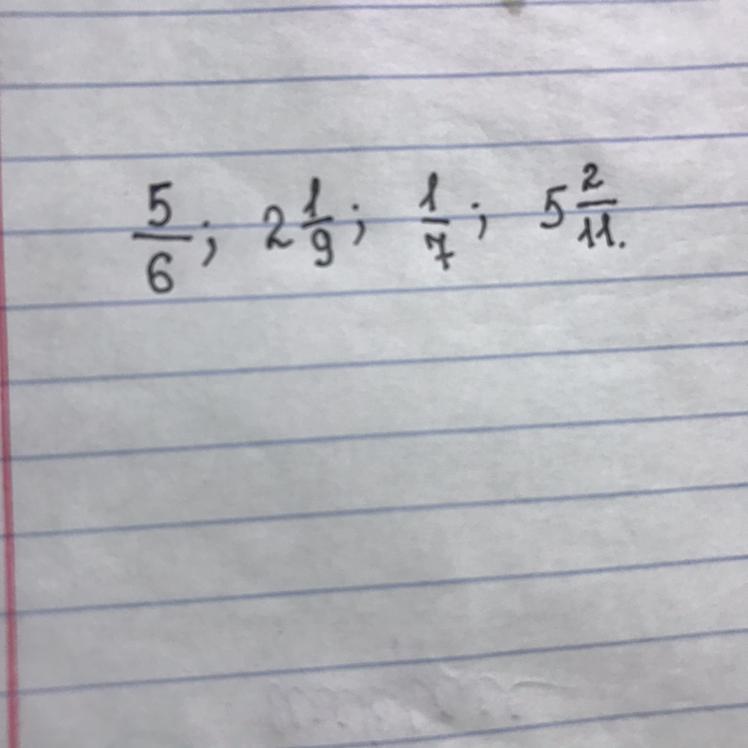 5/6; 2 1/9; 1/7; 5 2/11.